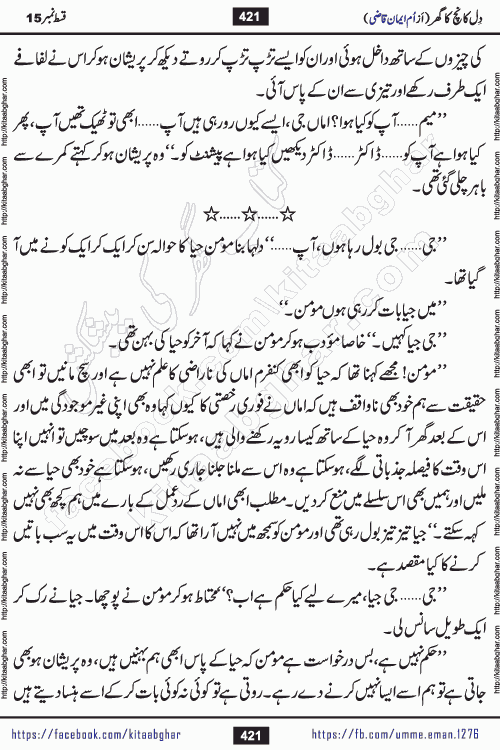 دِل کانچ کا گھر (از اُم ایمان قاضی) 421 قسط نمبر 15
کی چیزوں کے ساتھ داخل ہوئی اور ان کو ایسے تڑپ تڑپ کر روتے دیکھ کر پریشان ہو کر اس نے لفافے
ایک طرف رکھے اور تیزی سے ان کے پاس آئی۔
’’میم......آپ کو کیا ہوا؟ اماں جی، ایسے کیوں رو رہی ہیں آپ......ابھی تو ٹھیک تھیں آپ، پھر
کیا ہوا ہے آپ کو......ڈاکٹر......ڈاکٹر دیکھیں کیا ہوا ہے پیشنٹ کو۔‘‘ وہ پریشان ہو کر کہتے کمرے سے
باہر چلی گئی تھی۔
☆......☆......☆
’’جی......جی بول رہا ہوں، آپ......‘‘ دلہا بنا مؤمن حیا کا حوالہ سن کر ایک کر ایک کونے میں آ
گیا تھا۔
’’میں جیا بات کر رہی ہوں مؤمن۔‘‘
’’جی جیا کہیں۔‘‘ خاصا مؤدب ہو کر مؤمن نے کہا کہ آخر کو حیا کی بہن تھی۔
’’مؤمن! مجھے کہنا تھا کہ حیا کو ابھی کنفرم اماں کی ناراضی کا علم نہیں ہے اور سچ مانیں تو ابھی
حقیقت سے ہم خود بھی ناواقف ہیں کہ اماں نے فوری رخصتی کا کیوں کہا وہ بھی اپنی غیر موجودگی میں اور
اس کے بعد گھر آ کر وہ حیا کے ساتھ کیسا رویہ رکھنے والی ہیں، ہو سکتا ہے وہ بعد میں سوچیں تو انہیں اپنا
اس وقت کا فیصلہ جذباتی لگے، ہو سکتا ہے وہ اس سے ملنا جلنا جاری رکھیں، ہو سکتا ہے خود بھی حیا سے نہ
ملیں اور ہمیں بھی اس سلسلے میں منع کر دیں۔ مطلب ابھی اماں کے ردِعمل کے بارے میں ہم کچھ بھی نہیں
کہہ سکتے۔‘‘ جیا تیز تیز بول رہی تھی اور مؤمن کو سمجھ میں نہیں آ رہا تھا کہ اس کا اس وقت میں یہ سب باتیں
کرنے کا کیا مقصد ہے۔
’’جی......جی جیا، میرے لیے کیا حکم ہے اب؟‘‘ محتاط ہو کر مؤمن نے پوچھا۔ جیا نے رک کر
ایک طویل سانس لی۔
’’حکم نہیں ہے، بس درخواست ہے مؤمن کہ حیا کے پاس ابھی ہم بہنیں ہیں، وہ پریشان ہو بھی
جاتی ہے تو ہم اسے ایسا نہیں کرنے دے رہے۔ روتی ہے تو کوئی نہ کوئی بات کر کے اسے ہنسا دیتے ہیں
https://facebook.com/kitaabghar 421 https://fb.com/umme.eman.1276
http://kitaabghar.com
kitaabghar.com
facebook.com/kitaabghar
کتاب گھر کی پیشکش